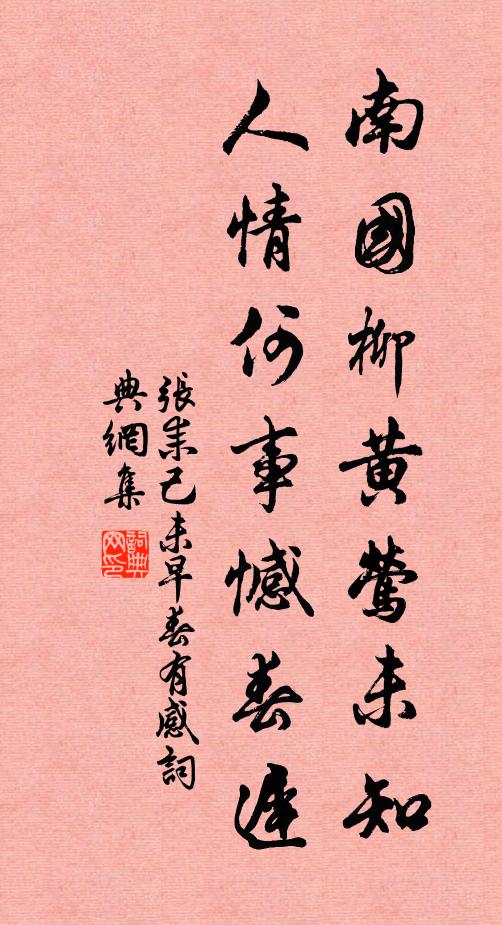 南國柳黄鶯未知
人情何事憾春遲
張己未早春有感詞
典網集
詞典
网印